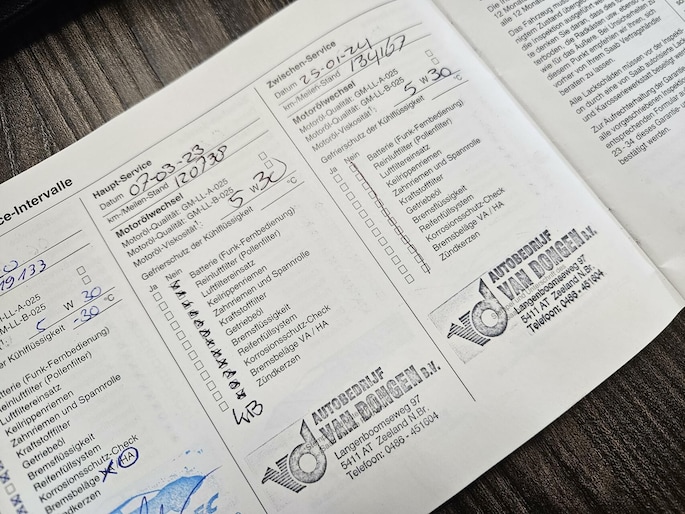 ce-Intervalle
19133
LL-A-025
GM-LL-B-025
W 30
der Kühlflüssigkeit -30 °C
Batterie (Funk-Fernbedienung)
Reinluftfilter (Pollenfilter)
Luftfiltereinsatz
Keilrippenriemen
Zahnriemen und Spannrolle
Kraftstoffilter
Getriebeöl
Bremsflüssigkeit
Reifenfüllsystem
Korrosionsschutz-Check
Bremsbeläge VA HA
Zündkerzen
Haupt-Service
Datum 07-03-23
km-/Meilen-Stand 120730
Motorölwechsel
Motoröl-Qualität: GM-LL-A-025
Motoröl-Qualität: GM-LL-B-025
Motoröl-Viskosität: 5 W 30
Gefrierschutz der Kühlflüssigkeit °C
Ja Nein
Batterie (Funk-Fernbedienung)
Reinluftfilter (Pollenfilter)
Luftfiltereinsatz
Keilrippenriemen
Zahnriemen und Spannrolle
Kraftstoffilter
Getriebeöl
Bremsflüssigkeit
Reifenfüllsystem
Korrosionsschutz-Check
Bremsbeläge VA / HA
Zündkerzen
AUTOBEDRIJF
VAN DONGEN B.V.
Langenboomseweg 97
5411 AT Zeeland N.Br.
Telefoon: 0486 - 451604
Zwischen-Service
Datum 25-01-24
km-/Meilen-Stand 134167
Motorölwechsel
Motoröl-Qualität: GM-LL-A-025
Motoröl-Qualität: GM-LL-B-025
Motoröl-Viskosität: 5 W 30
Gefrierschutz der Kühlflüssigkeit °C
Ja Nein
Batterie (Funk-Fernbedienung)
Reinluftfilter (Pollenfilter)
Luftfiltereinsatz
Keilrippenriemen
Zahnriemen und Spannrolle
Kraftstoffilter
Getriebeöl
Bremsflüssigkeit
Reifenfüllsystem
Korrosionsschutz-Check
Bremsbeläge VA / HA
Zündkerzen
AUTOBEDRIJF
VAN DONGEN B.V.
Langenboomseweg 97
5411 AT Zeeland N.Br.
Telefoon: 0486 - 451604
alle 12 Monate
Das Fahrzeug muss
nigtem Zustand übergeben
die Inspektion ausgeführt
te denken Sie daran, dass
wie für das Äußere. Bei Unsicherheiten
diesem Punkt empfehlen wir Ihnen, sich
vorher von Ihrem Saab Vertragshändler
beraten zu lassen.
Alle Lackschäden müssen vor der Inspekti-
on durch eine von Saab autorisierte Lack-
und Karosseriewerkstatt beseitigt werden.
Zur Aufrechterhaltung der Garantie
alle vorgeschriebenen
entsprechenden Formular
23 - 34, dieses Garantie-
bestätigt werden.